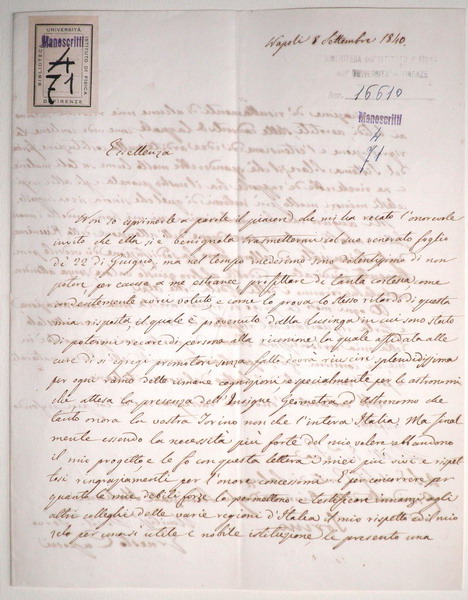 UNIVERSITÀ
BIBLIOTECA
ISTITUTO DI FISICA
Manoscritti
4
71
DI FIRENZE
Napoli 8 Settembre 1840.
16610
Manoscritti
4
71
Eccellenza
Non so esprimerle a parole il piacere che mi ha recato l'onorevole
invito che ella si è benignata trasmettermi col suo venerato foglio
di 22 di Giugno, ma nel tempo medesimo sono dolentissimo di non
poter per cause a me estranee profittare di tanta cortesia come
ardentemente avrei voluto, e come lo prova lo stesso ritardo di questa
mia risposta, il quale è provenuto dalla lusinga in cui sono stato
di potermi recare di persona alla riunione, la quale affidata alle
cure di sì egregi promotori senza fallo dovrà riuscire splendidissima
per ogni ramo delle umane cognizioni e specialmente per le astronomi
che attesa la presenza dell'Insigne Geometra ed Astronomo che
tanto onora la vostra Torino non che l'intera Italia. Ma final
mente essendo la necessità più forte del mio volere abbandono
il mio progetto e le fo con questa lettera i miei più vivi e rispet
tosi ringraziamenti per l'onore concessomi. E per concorrere per
quanto le mie debili forze lo permettono e testificare innanzi agli
altri colleghi delle varie regioni d'Italia il mio rispetto ed il mio
zelo per una sì utile e nobile istituzione, le presento una